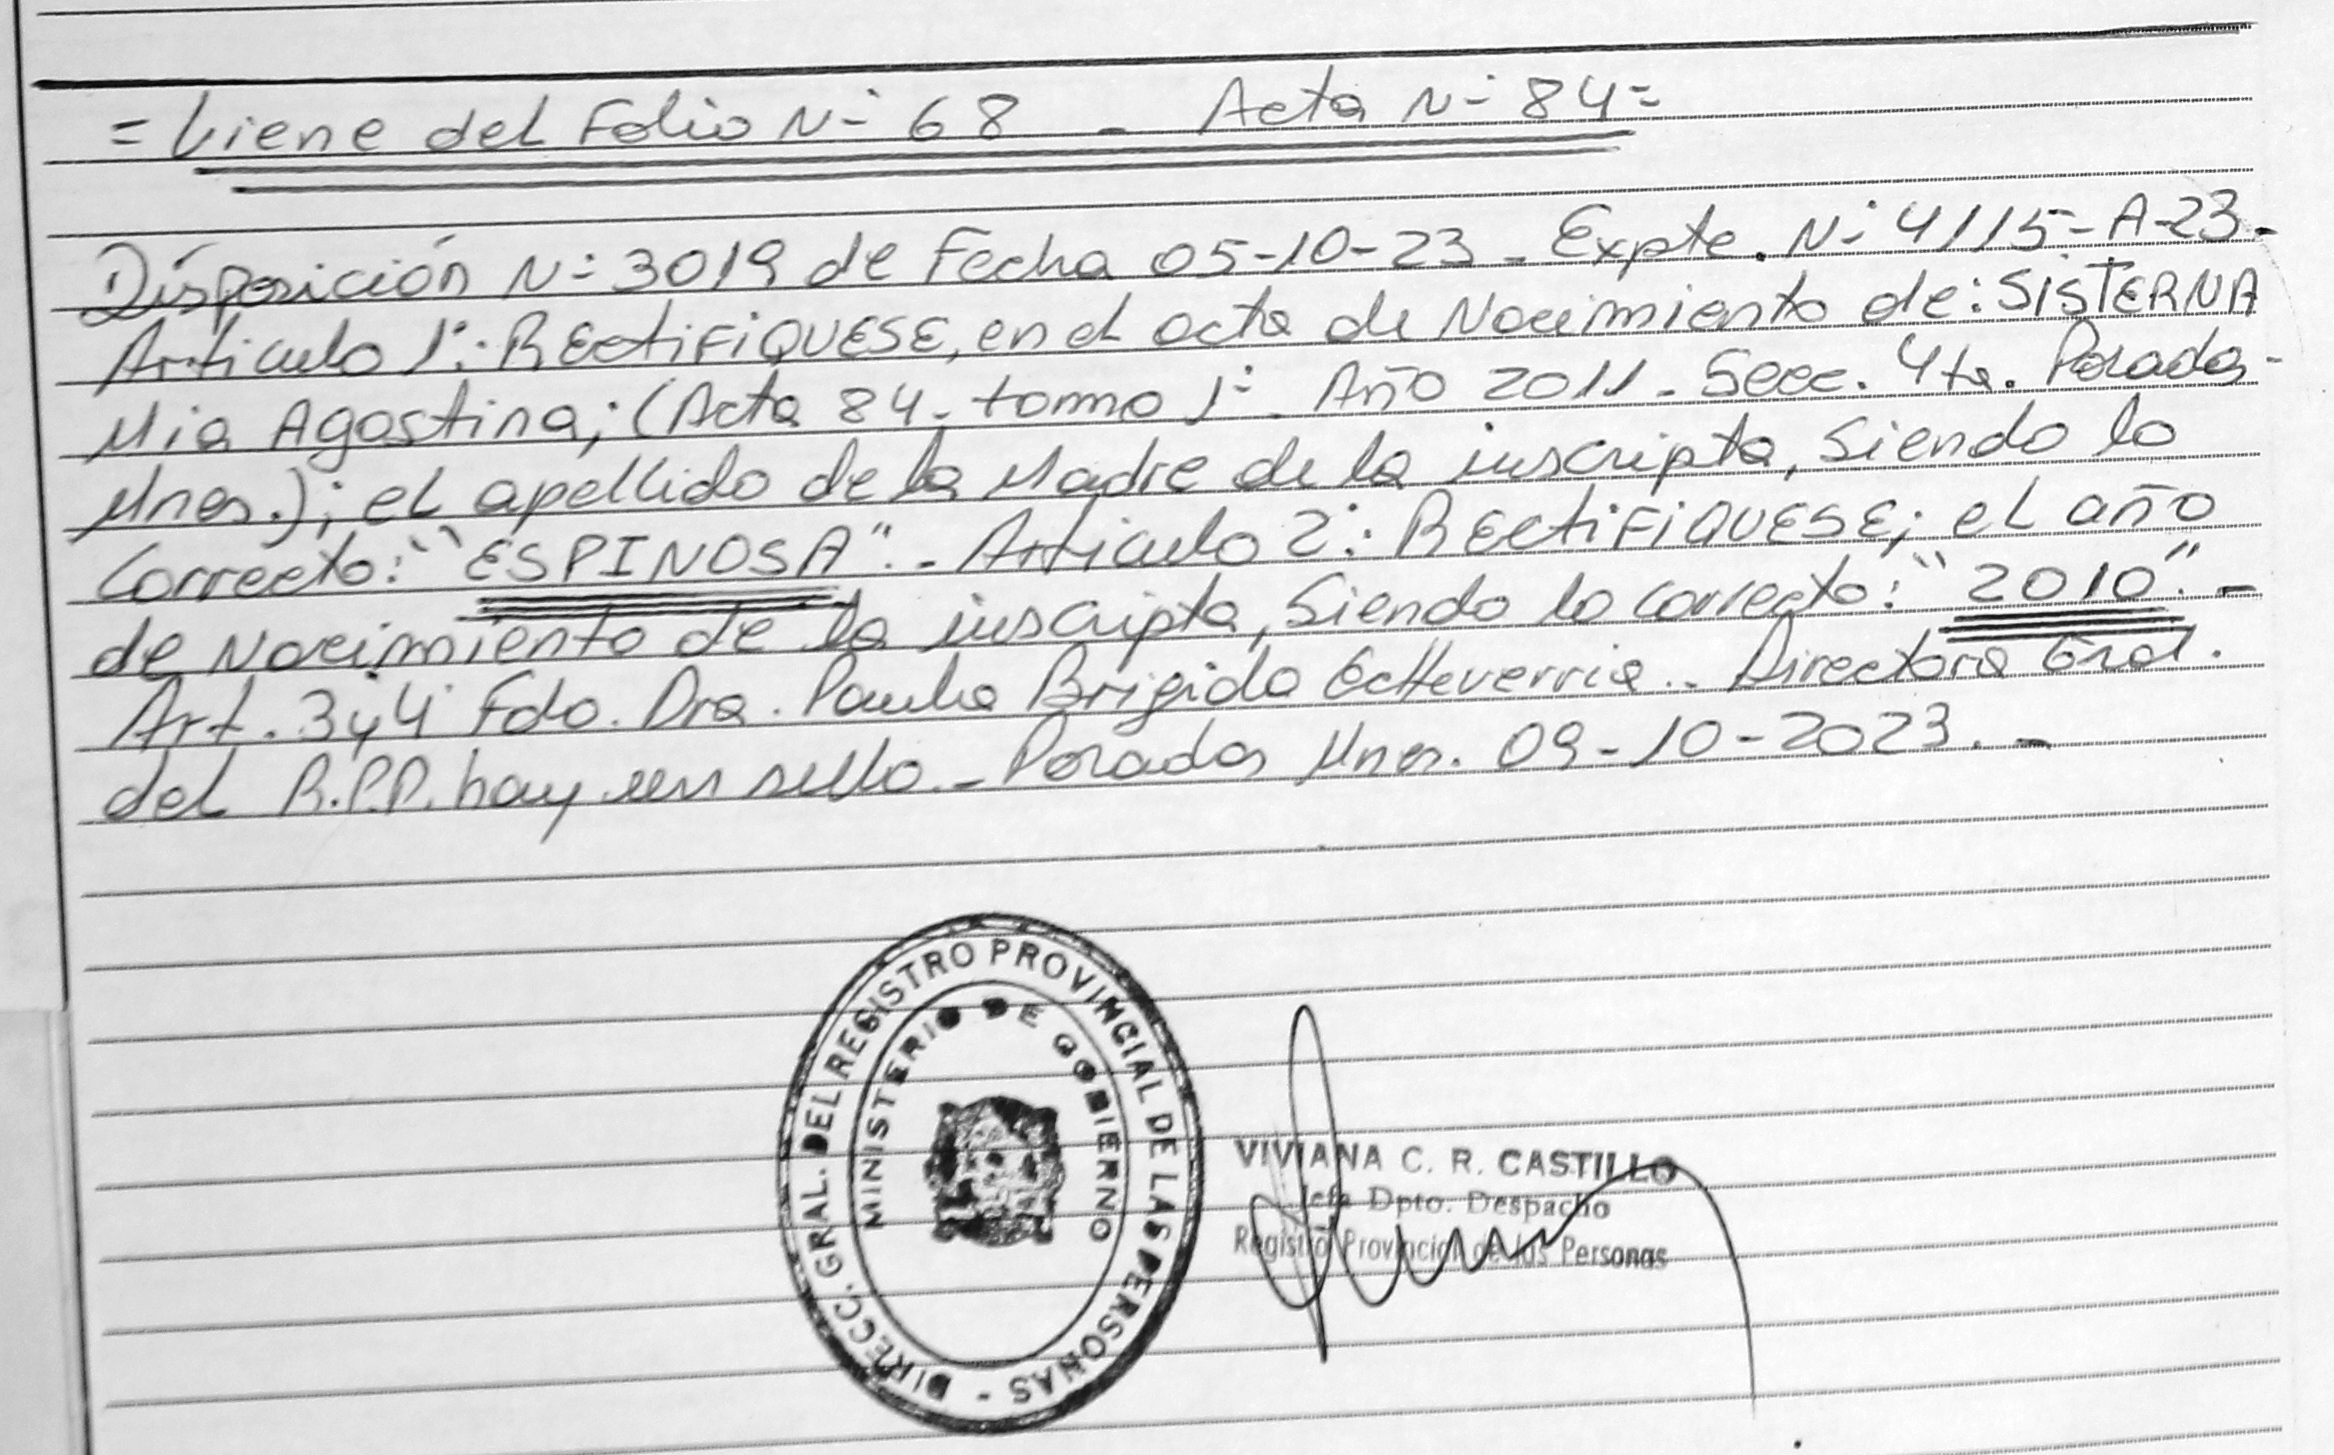 = Viene del Folio N° 68 - Acta N° 84 =
Disposición N° 3019 de Fecha 05-10-23 - Expte. N° 4115-A-23.
Articulo 1°: REctiFiQUESE, en el acta de Nacimiento de: SISTERNA
Mia Agostina; (Acta 84 - tomo 1° - Año 2011 - Secc. 4ta. Posadas -
Mnes.); el apellido de la Madre de la inscripta, Siendo lo
Correcto: "ESPINOSA". - Articulo 2°: REctiFiQUESE; el año
de Nacimiento de la inscripta, Siendo lo correcto: "2010". -
Art. 3 y 4 Fdo. Dra. Paula Brigida Echeverria - Directora Gral.
del R.P.P. hay un sello - Posadas Mnes. 09-10-2023. -
DIRECC. GRAL. DEL REGISTRO PROVINCIAL DE LAS PERSONAS -
MINISTERIO DE GOBIERNO
VIVIANA C. R. CASTILLO
Jefa Dpto. Despacho
Registro Provincial de las Personas